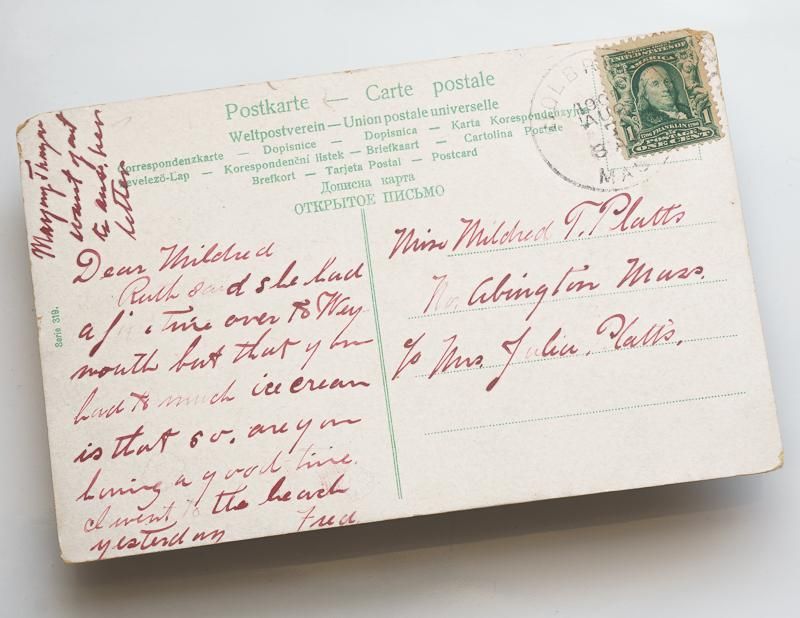 Postkarte — Carte postale
Weltpostverein — Union postale universelle
Correspondenzkarte — Dopisnice — Dopisnica — Karta Korespondenzyjna
Levelező-Lap — Korespondenční listek — Briefkaart — Cartolina Postale
Brefkort — Tarjeta Postal — Postcard
Дописна карта
ОТКРЫТОЕ ПИСЬМО
UNITED STATES OF
AMERICA
1706 FRANKLIN 1790
1 1
POSTAGE
ONE CENT
HOLBR
AU
MAS
to
her
letter
Dear Mildred
Ruth said she had
a fine time over to Wey-
mouth but that you
had to much ice cream
is that so. are you
having a good time.
I went to the beach
yesterday Fred
Serie 319.
Miss Mildred T. Platts
No. Abington Mass.
c/o Mrs. Julia. Platts.